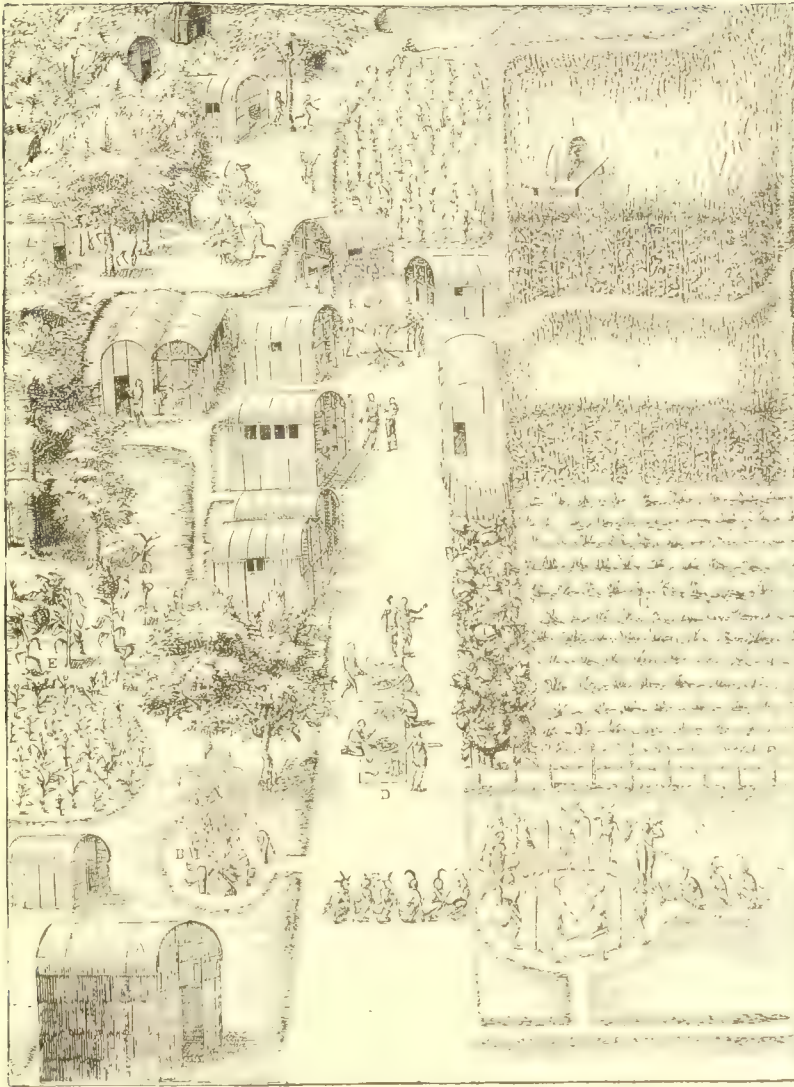 E
D
B